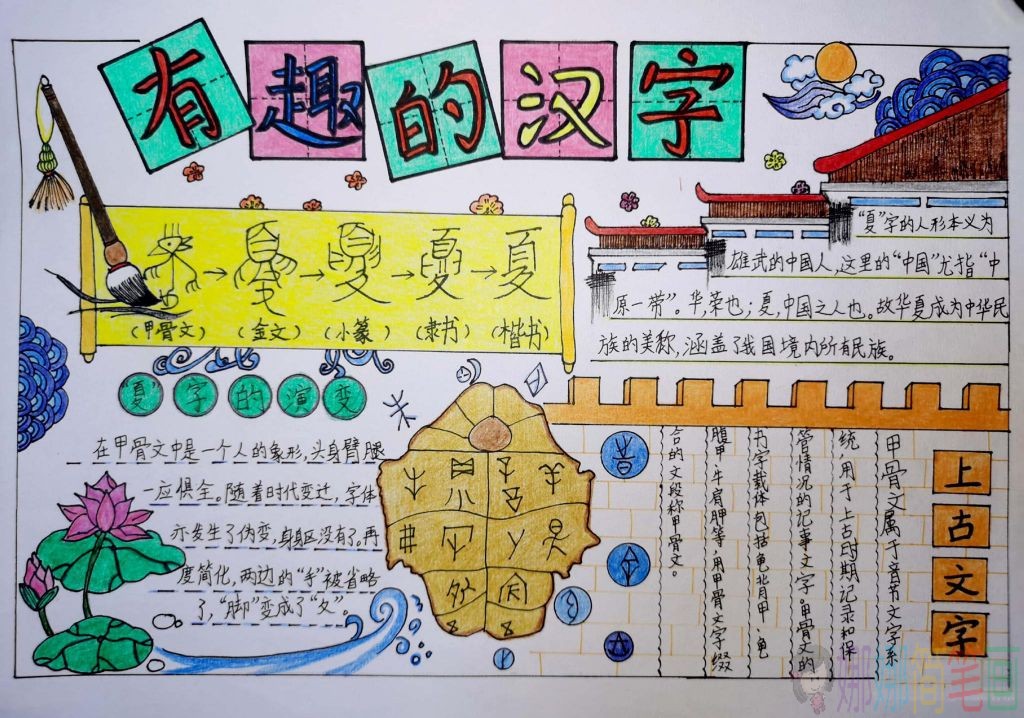 有趣的汉字
(甲骨文) (金文) (小篆) (隶书) (楷书)
夏
“夏”字的人形本义为
雄武的中国人,这里的“中国”尤指“中
原一带”。华,荣也;夏,中国之人也。故华夏成为中华民
族的美称,涵盖了我国境内所有民族。
“夏”字的演变
在甲骨文中是一个人的象形,头身臂腿
一应俱全。随着时代变迁,字体
亦发生了伪变,身躯没有了。再
度简化,两边的“手”被省略
了,“脚”变成了“夂”。
上古文字
甲骨文属于音节文字系
统,用于上古时期记录和保
管情况的记事文字。甲骨文的
书字载体包括龟北月甲、龟
腹甲、牛肩胛等,用甲骨文字缀
合的文段称甲骨文。
娜娜简笔画